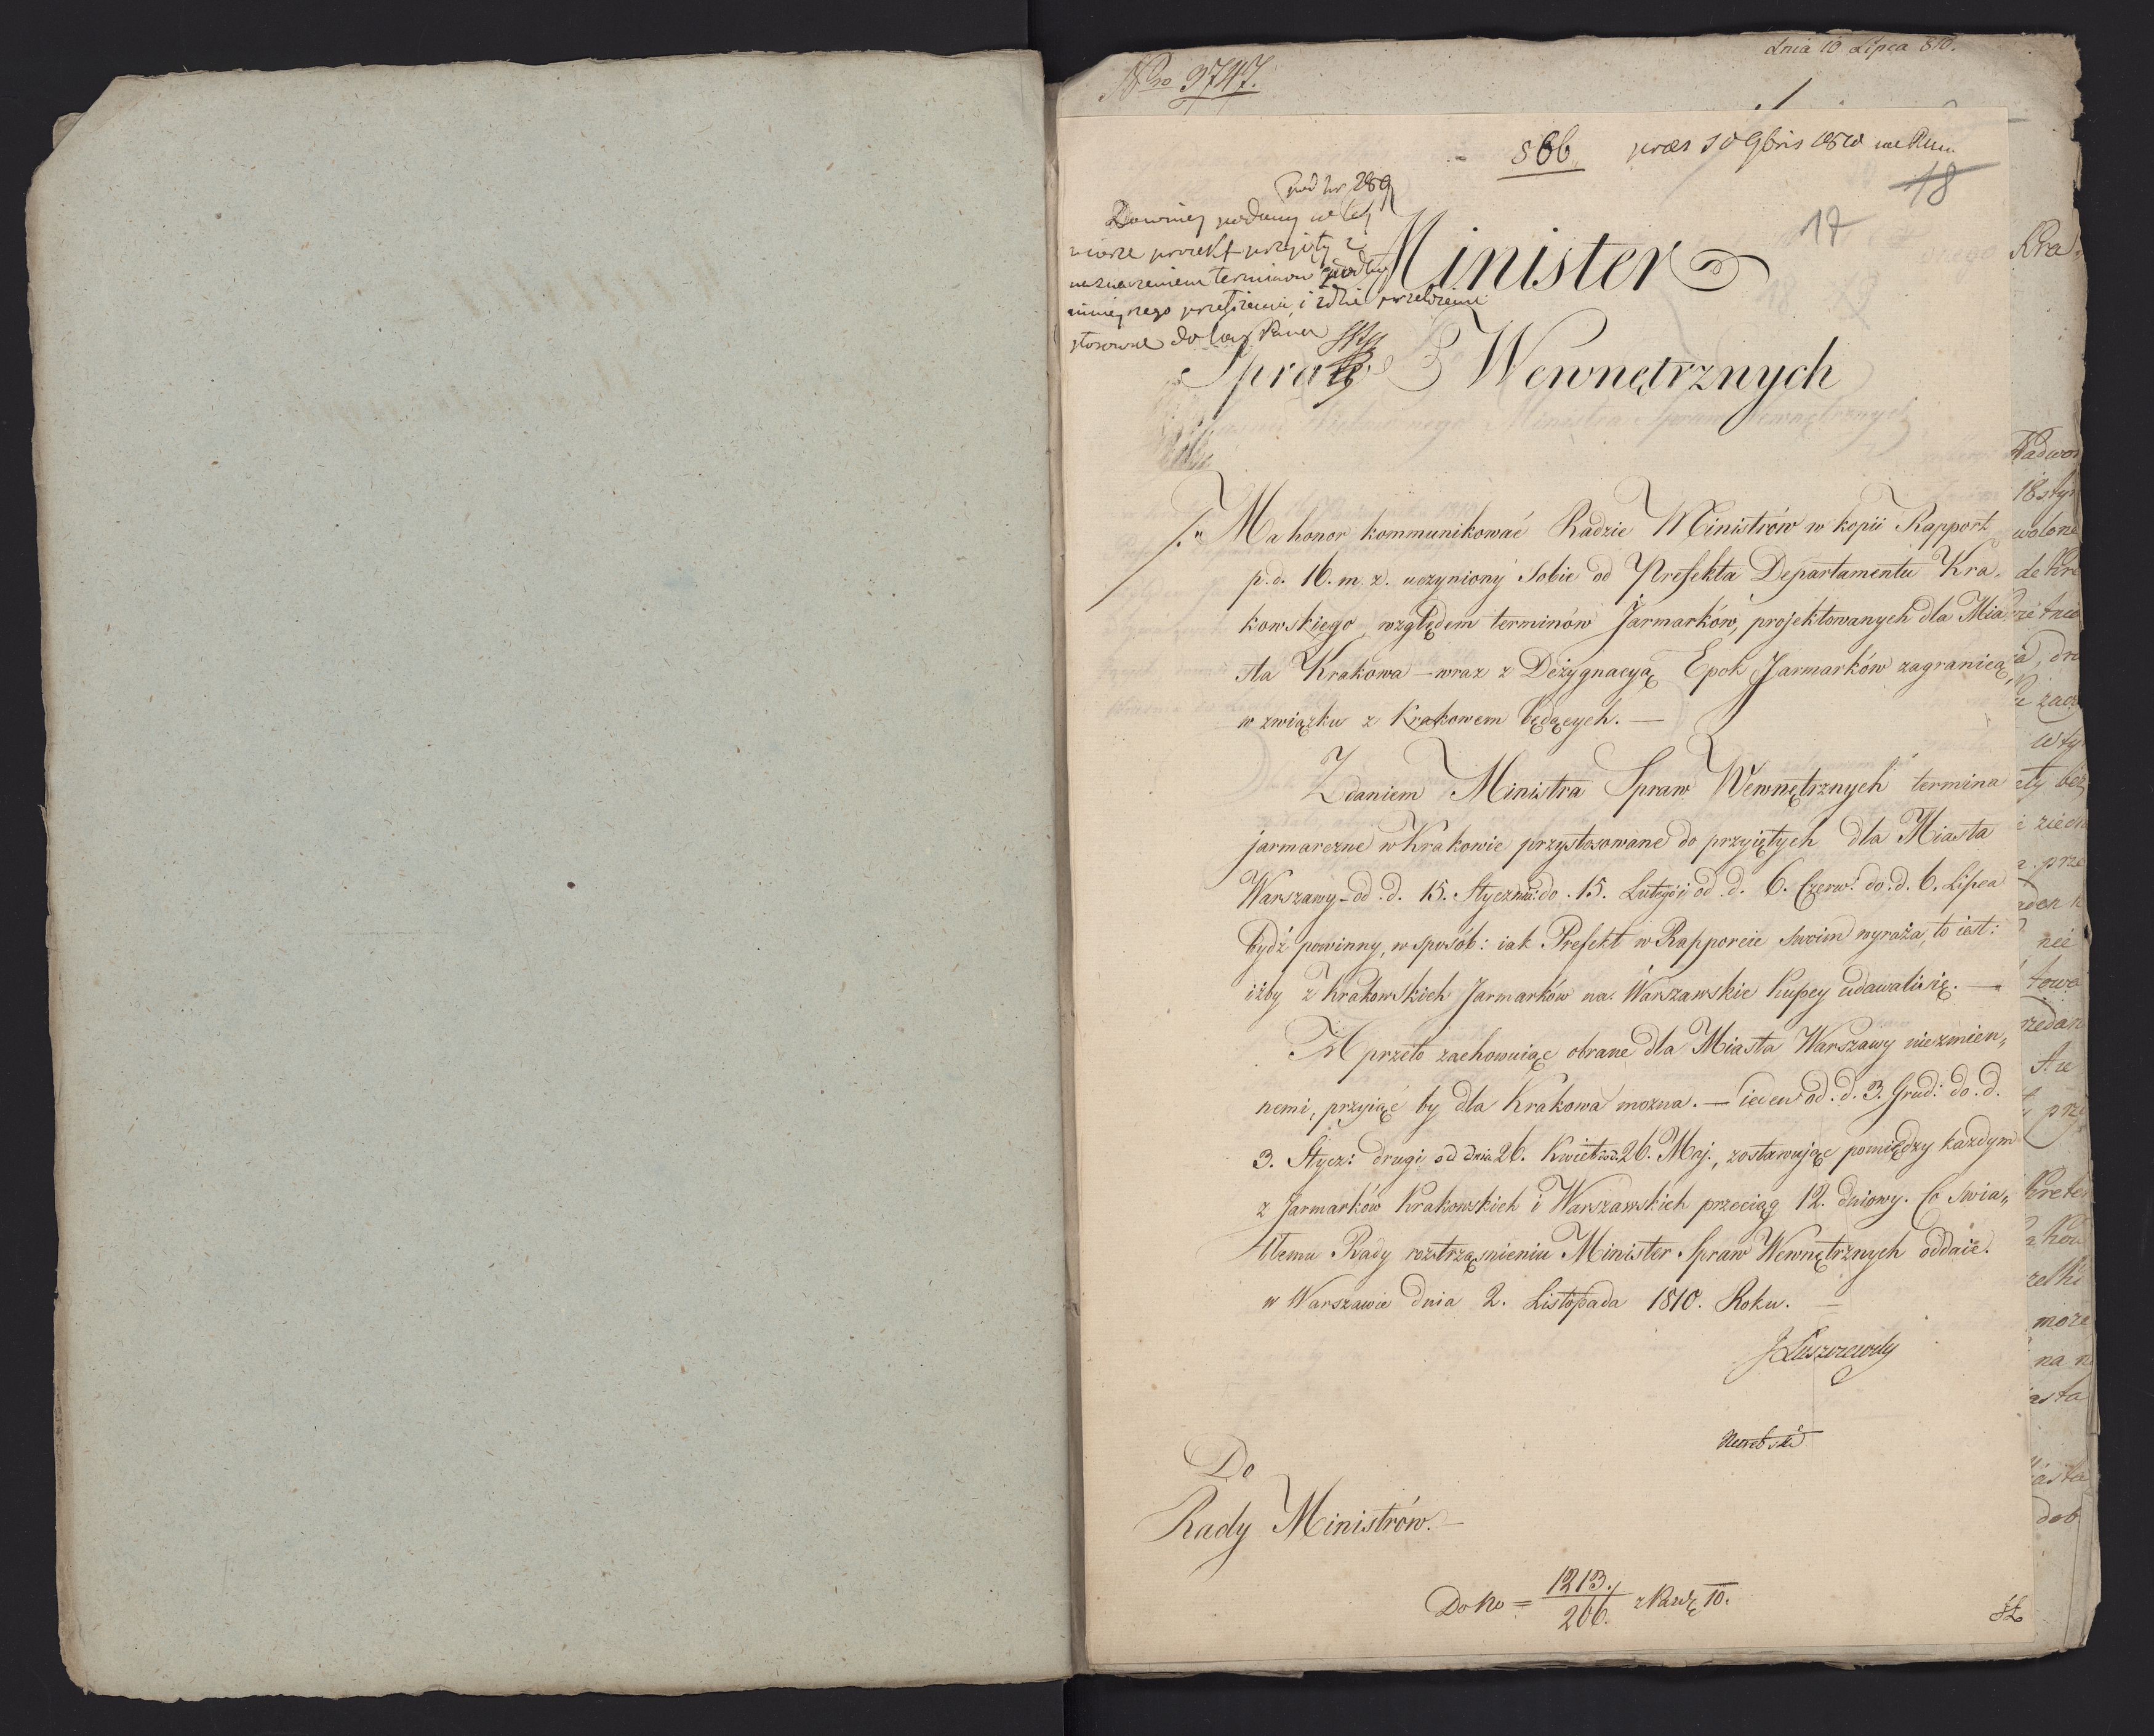 dnia 10 Lipca 810.
Nro 3747.
866 præs 10 9bris 1810
18
17
pod Nr 289
Dawniej podany w tej
mierze proiekt przyięty z
naznaczeniem terminów podług
ninieyszego
stosowne do
Minister
Spraw Wewnętrznych
Ma honor kommunikować Radzie Ministrów w kopii Rapport
p. d. 16. m. z. uczyniony Sobie od Prefekta Departamentu Kra-
kowskiego względem terminów Jarmarków, projektowanych dla Mia
sta Krakowa – wraz z Dezygnacyą Epok Jarmarków zagranicą,
w związku z Krakowem będących. —
Zdaniem Ministra Spraw Wewnętrznych termina
jarmarczne w Krakowie przystosowane do przyiętych dla Miasta
Warszawy – od d. 15. Stycznia: do 15. Lutego i od d. 6. Czerw: do d. 6. Lipca
bydź powinny, w sposób: iak Prefekt w Rapporcie Swoim wyraża, to iest:
iżby z Krakowskich Jarmarków na Warszawskie Kupcy udawali się. —
A przeto zachowuiąc obrane dla Miasta Warszawy niezmien„
nemi, przyiąć by dla Krakowa można. — ieden od d. 3. Grud: do d.
3. Stycz: drugi od dnia 26. Kwiet: do 26. Maj., zostawując pomiędzy każdym
z Jarmarków Krakowskich i Warszawskich przeciąg 12. dniowy. Co Swia„
tłemu Rady roztrząśnieniu Minister Spraw Wewnętrznych oddaie.
w Warszawie dnia 2. Listopada 1810. Roku. —
J Łuszczewsky
Do
Rady Ministrów. —
Do No = 1213./266. 10.
Kra„